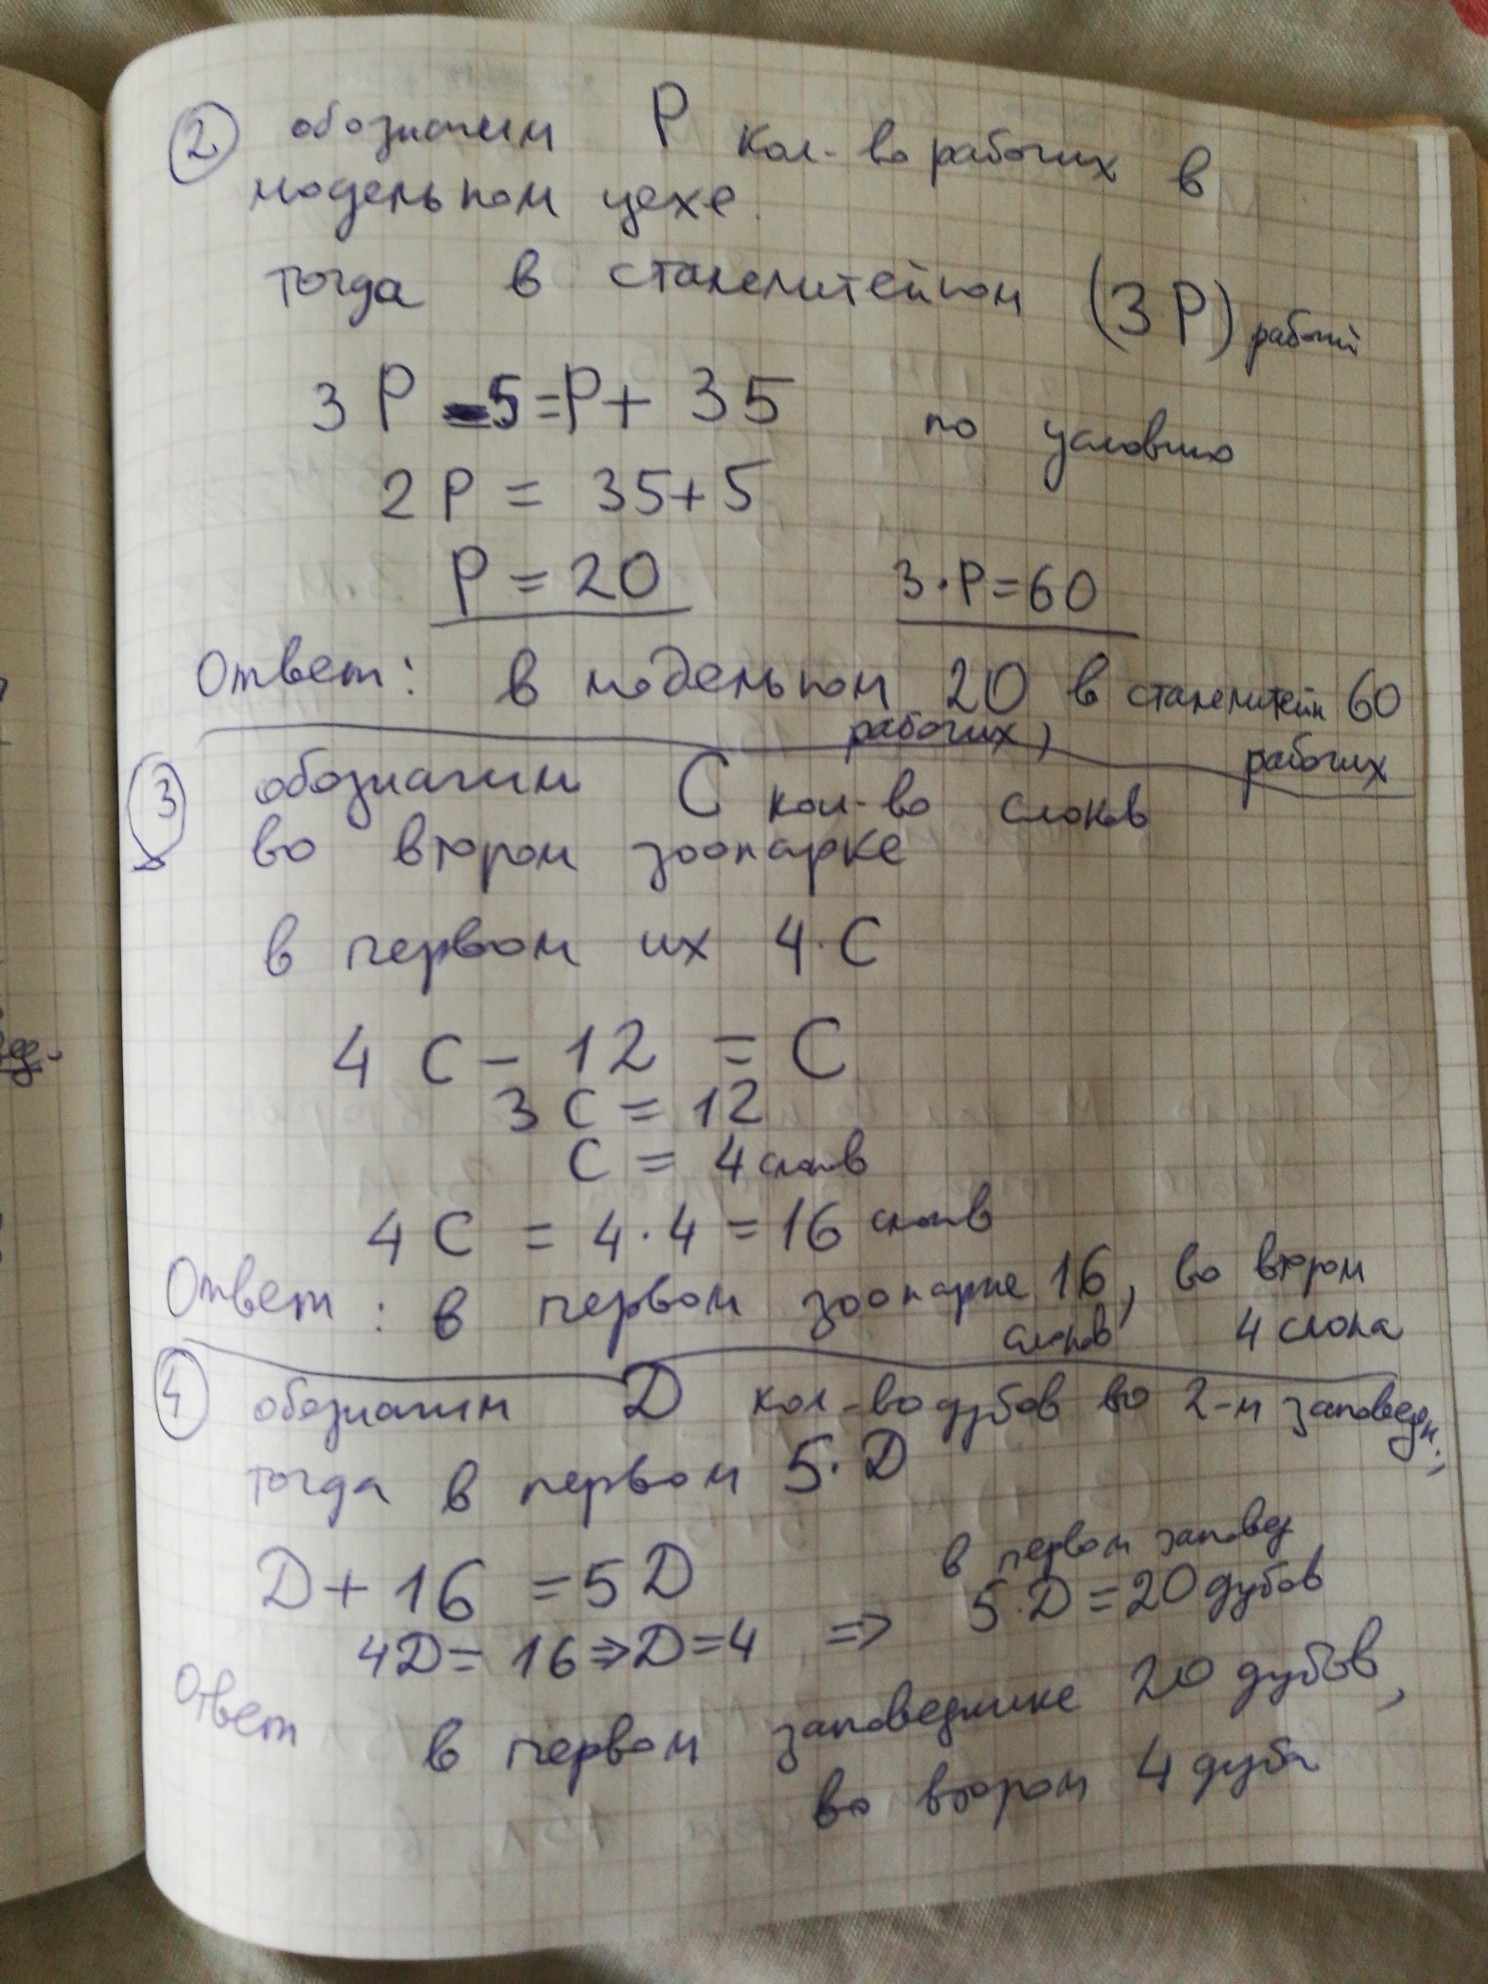 2 обозначим P кол-во рабочих в
модельном цехе.
тогда в сталелитейном (3P) рабочих
3P - 5 = P + 35 по условию
2P = 35 + 5
P = 20 3·P = 60
Ответ: в модельном 20 в сталелитейн 60
рабочих, рабочих
3 обозначим C кол-во слонов
во втором зоопарке
в первом их 4·C
4C - 12 = C
3C = 12
C = 4 слонов
4C = 4·4 = 16 слонов
Ответ: в первом зоопарке 16, во втором
слонов 4 слона
4 обозначим D кол-во дубов во 2-м заповедн.
тогда в первом 5·D
в первом заповед
D + 16 = 5D
5·D = 20 дубов
4D = 16 ⇒ D = 4 ⇒
Ответ в первом заповеднике 20 дубов,
во втором 4 дуба